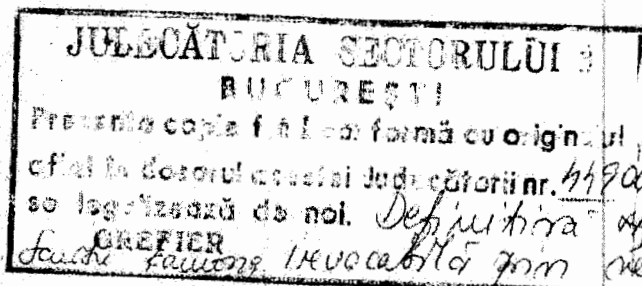 JUDECĂTORIA SECTORULUI
BUCUREŞTI
Prezenta copie fiind conformă cu originalul
aflat în dosarul acestei Judecătorii nr.
se legalizează de noi. Definitivă
GREFIER
irevocabilă prin